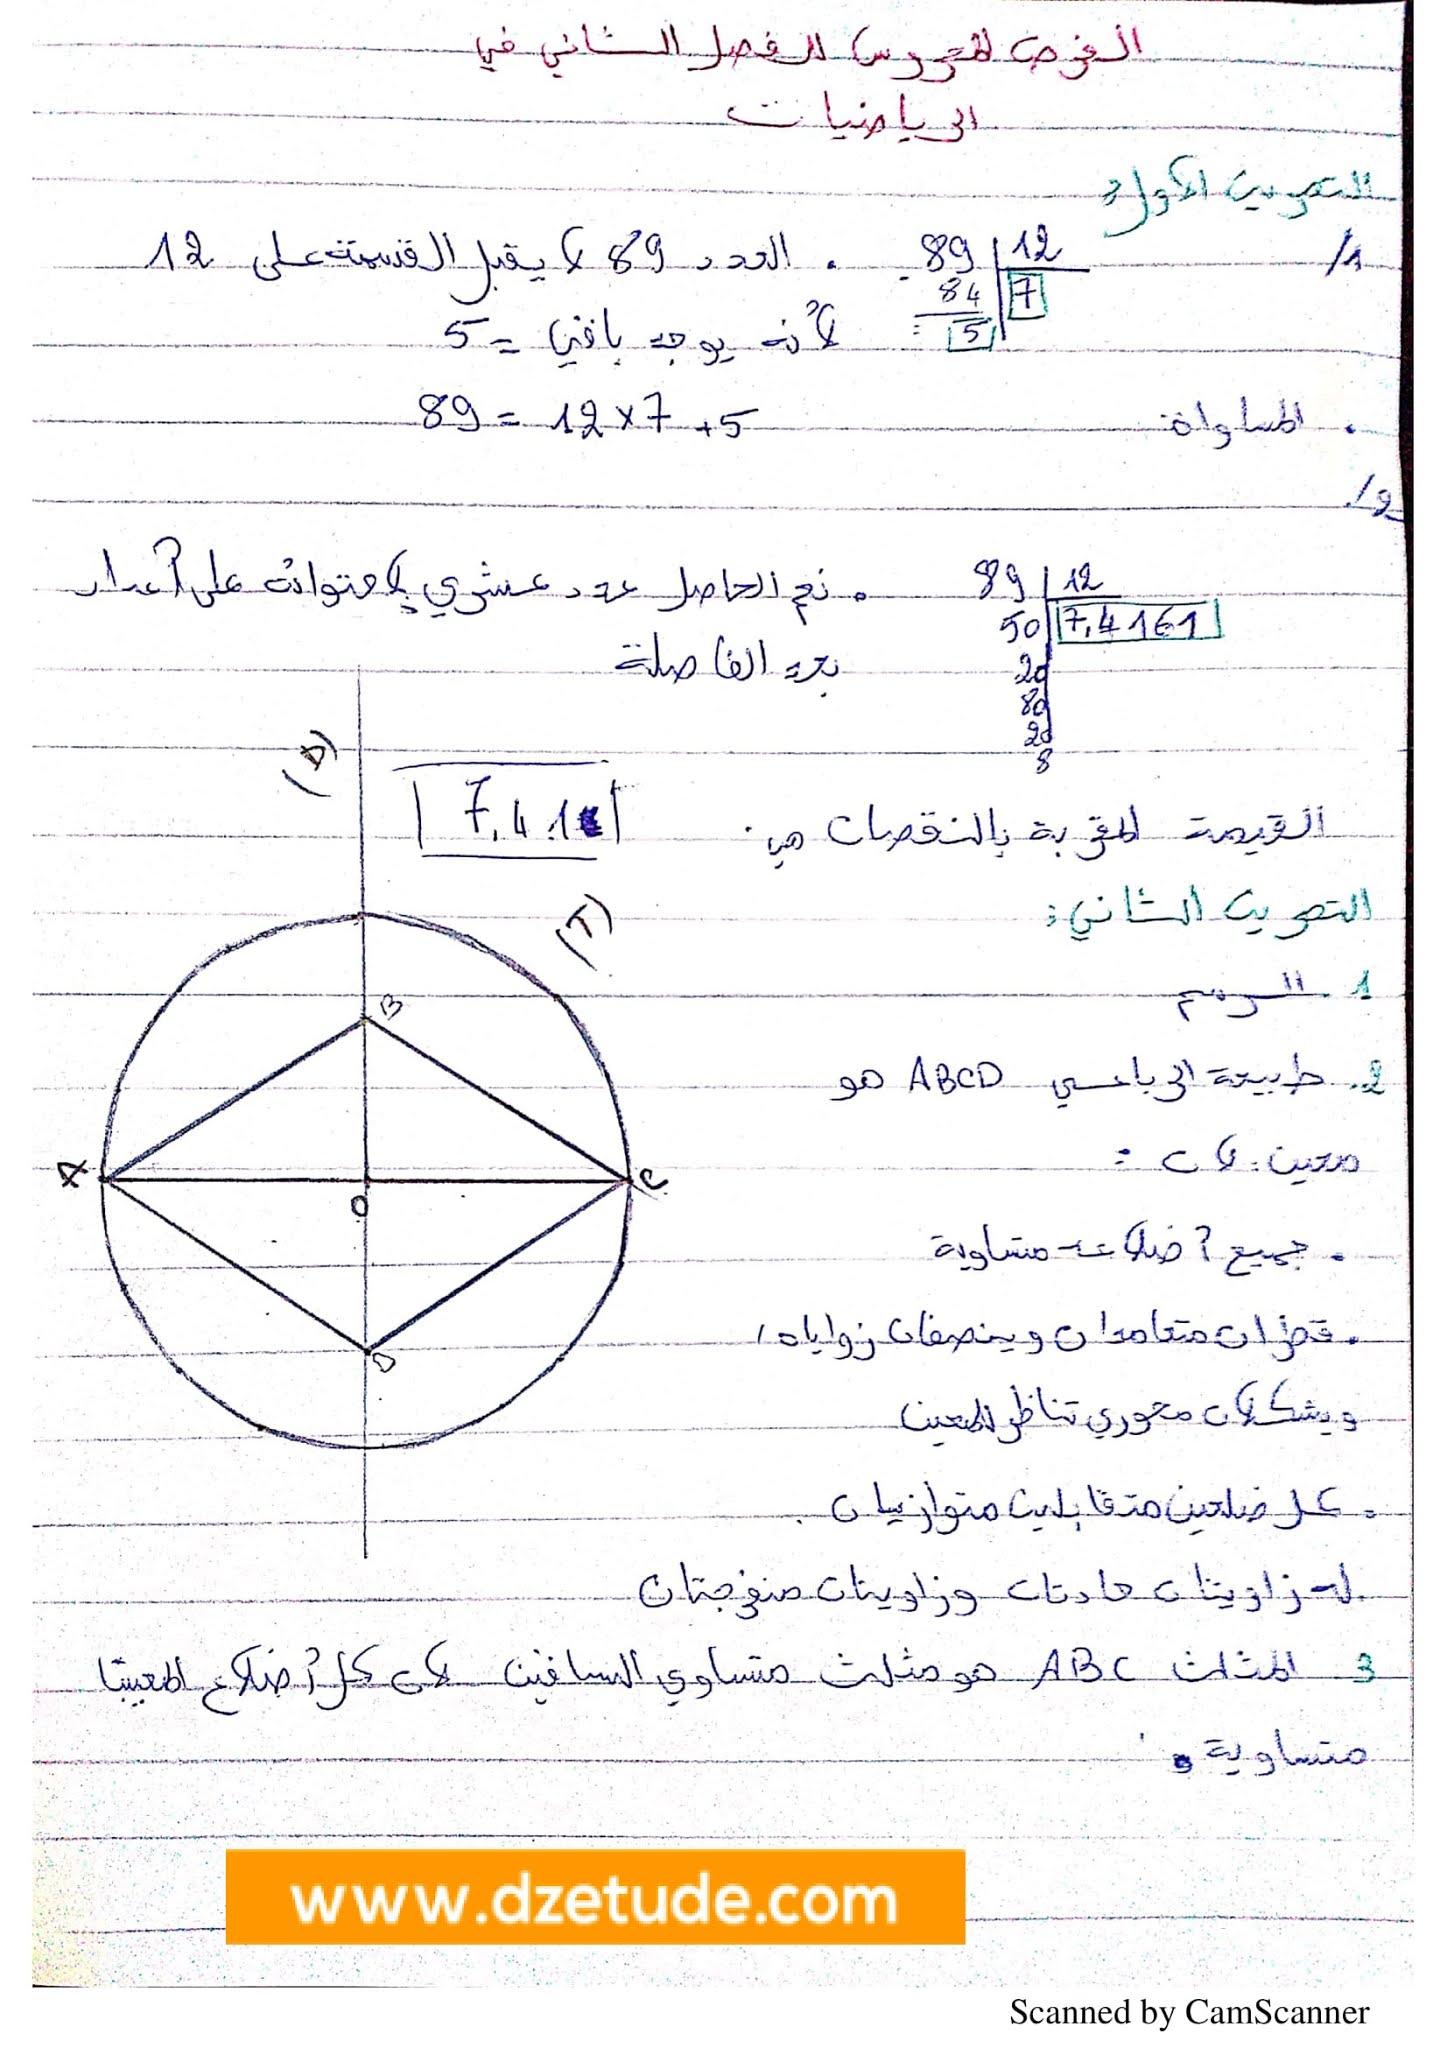 الفرض المحروس للفصل الثاني في
الرياضيات
التمرين الأول:
1/
89 | 12
84 | 7
5
. العدد 89 لا يقبل القسمة على 12
لأنه يوجد باقي = 5
. المساواة
89 = 12 × 7 + 5
2/
89 | 12
50 | 7,4161
20
80
20
8
. نعم الحاصل عدد عشري لاحتوائه على أعداد
بعد الفاصلة
القيمة المقربة بالنقصان هي:
7,41
(D)
التمرين الثاني:
(T)
1. الرسم
B
2. طبيعة الرباعي ABCD هو
معين. لأن:
A
O
C
. جميع أضلاعه متساوية
. قطران متعامدان وينصفان زواياه،
D
ويشكلان محوري تناظر للمعين
. كل ضلعين متقابلين متوازيان.
. له زاويتان حادتان وزاويتان منفرجتان
3 المثلث ABC هو مثلث متساوي الساقين لأن كل أضلاع المعين
متساوية.
www.dzetude.com
Scanned by CamScanner